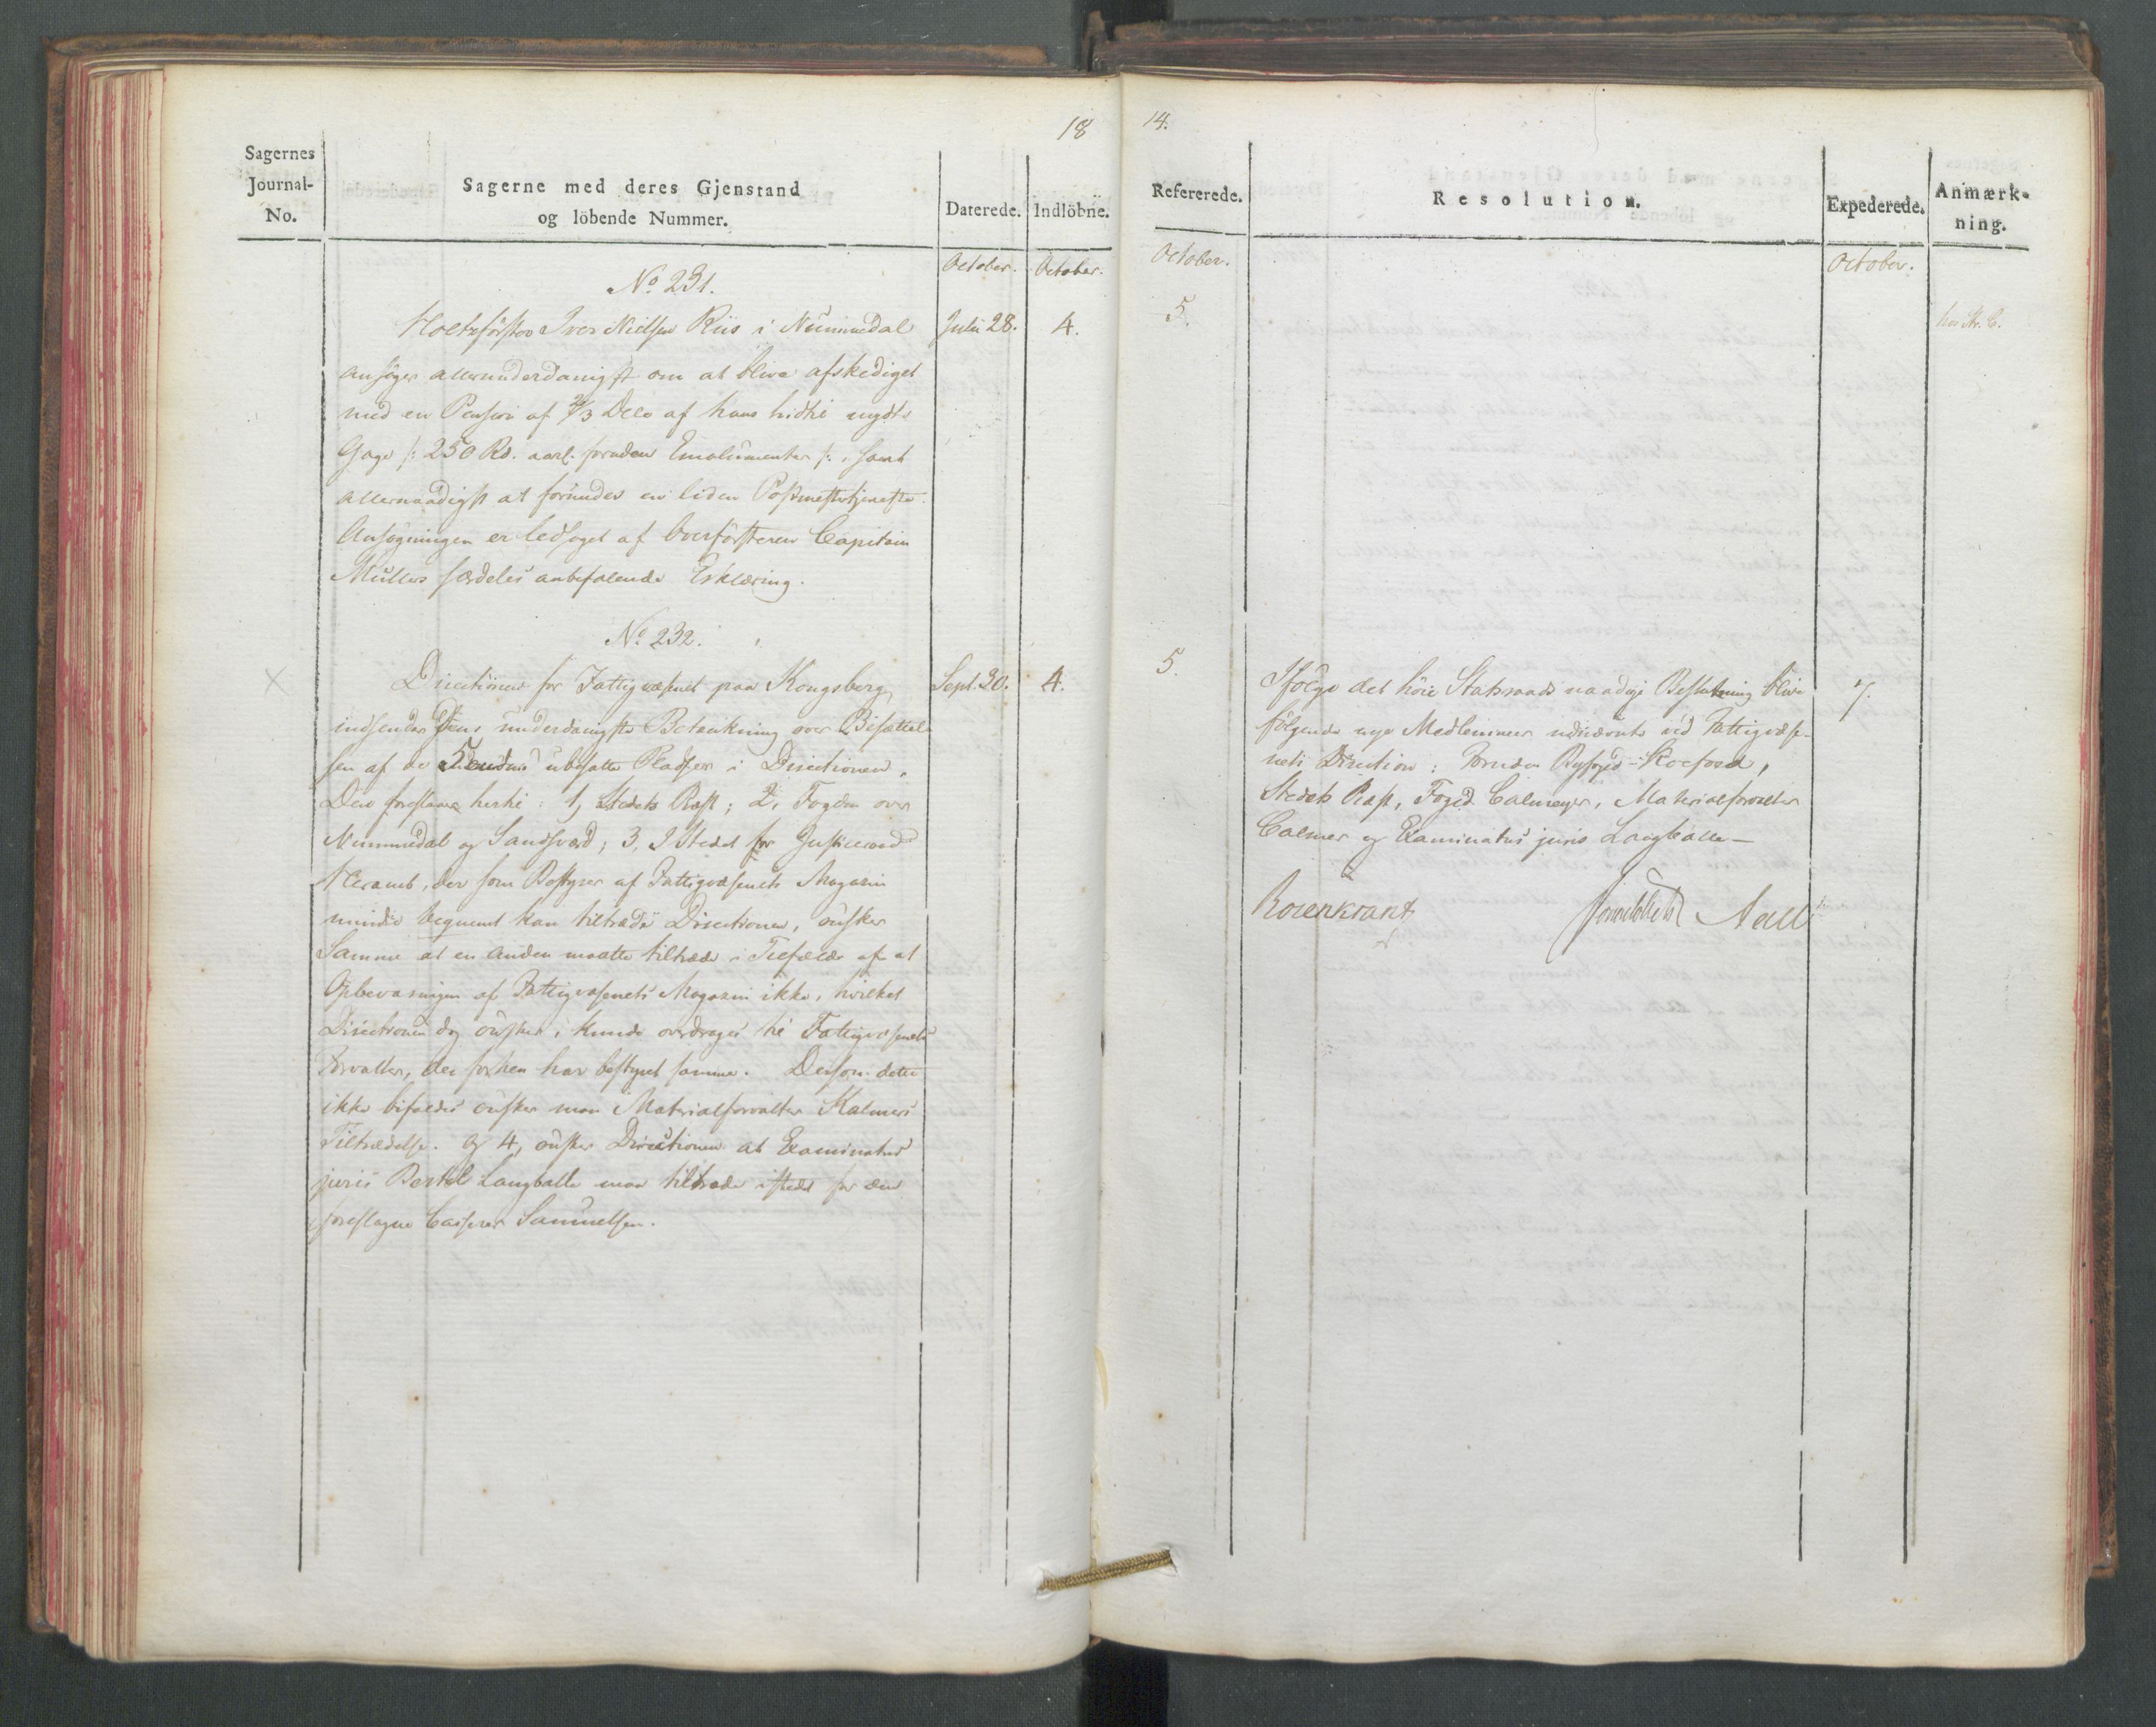 18
14.
Sagernes
Journal-
No.
Sagerne med deres Gjenstand
og löbende Nummer.
Daterede.
Indlöbne.
Refererede.
Resolution.
Expederede.
Anmærk-
ning.
October.
October.
October.
October.
No 231.
Holtzförster Iver Nielsen Riis i Nummedal
Julii 28.
4.
5.
hos Str. C.
ansöger allerunderdanigst om at blive afskediget
med en Pension af 2/3 Dele af hans hidtil nydte
Gage /: 250 Rd. aarl. foruden Emolumenter :/, samt
allernaadigst at forundes en liden Postmestertjeneste.
Ansögningen er ledsaget af Overförsteren Capitain
Müllers særdeles anbefalende Erklæring.
No 232.
Directionen for Fattigvæsenet paa Kongsberg
Sept. 30.
4.
5.
7.
indsender dens underdanigste Betænkning over Besættel-
sen af de ubesatte Pladser i Directionen.
Den foreslaaer hertil: 1, Stedets Præst; 2, Fogden over
Nummedal og Sandsværd; 3, I Stedet for Justiceraad
Heramb, der som Bestyrer af Fattigvæsenets Magazin
mindre beqvemt kan tiltræde Directionen, önsker
Samme at en anden maatte tiltræde i Tilfælde af at
Opbevaringen af Fattigvæsenets Magazin ikke, hvilket
Directionen dog önsker, kunde overdrages til Fattigvæsenets
Forvalter, der forhen har bestyret samme. Dersom dette
ikke bifaldes önsker man Materialforvalter Kalmers
Tiltrædelse. Og 4, önsker Directionen at Examinatus
juris Bertel Langballe maa tiltræde istedet for den
foreslagne Casserer Samuelsen.
Ifölge det höie Statsraads naadige Beslutning blive
fölgende nye Medlemmer udnævnte ved Fattigvæse-
nets Direction: Foruden Byefoged Koefoed,
Stedets Præst, Foged Calmeyer, Materialforvalter
Calmer og Examinatus juris Langballe—
Rosenkrantz
Sommerhielm
Aall